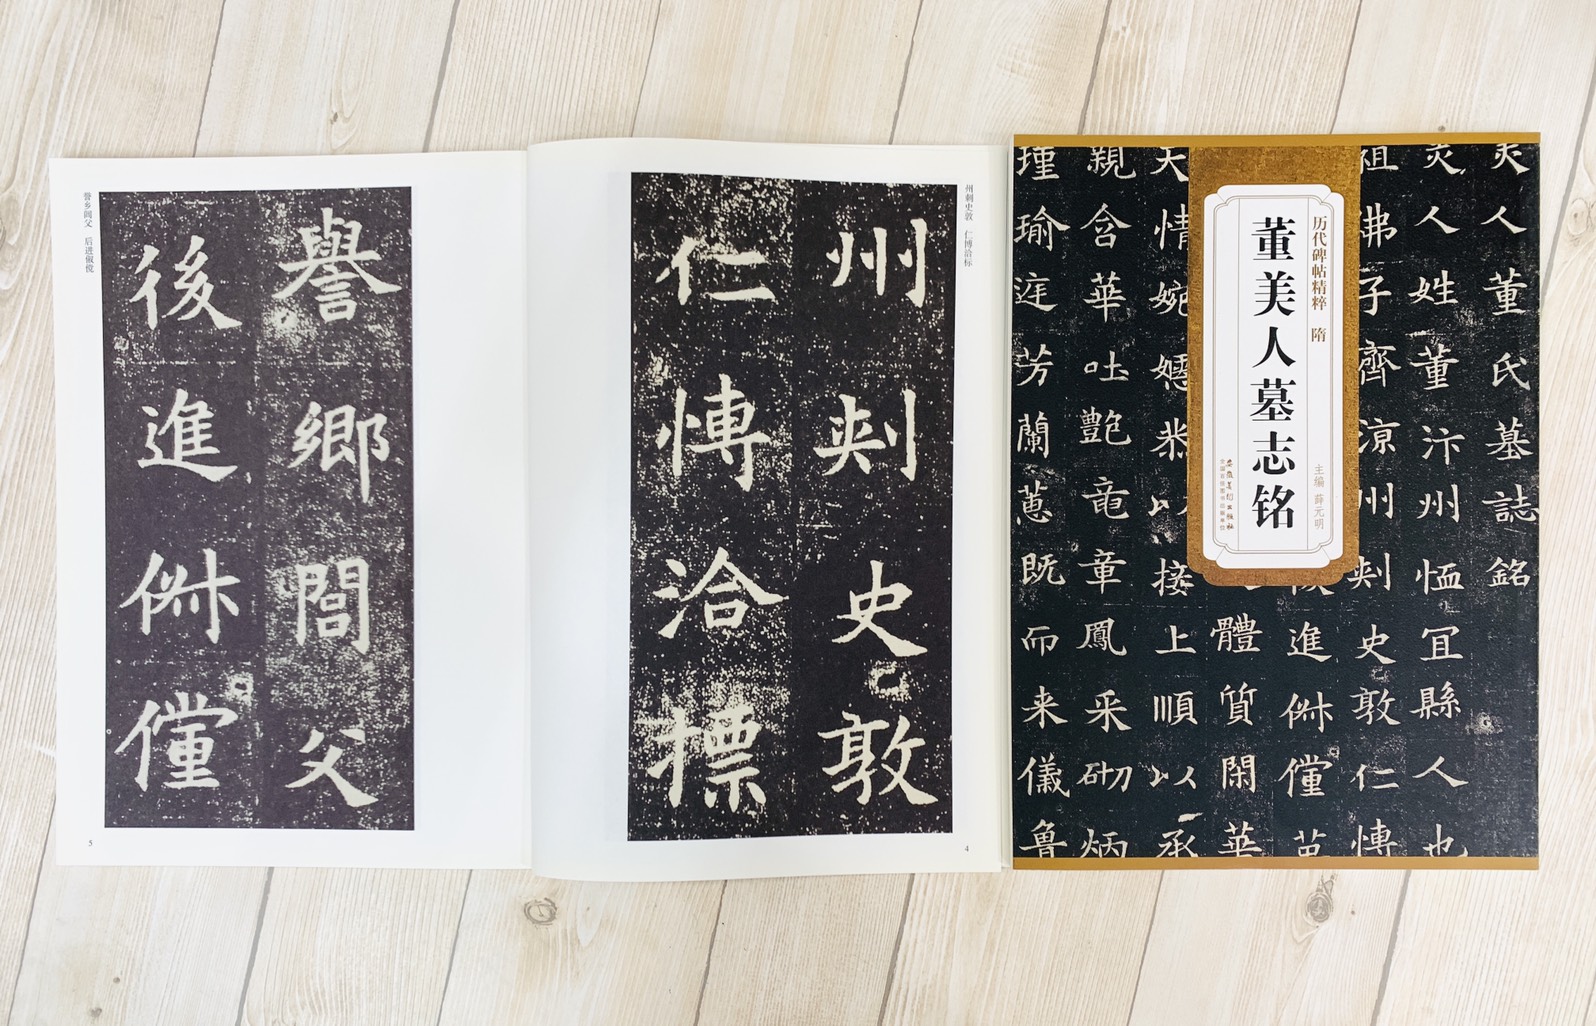 州刺史敦 仁博洽标
州刾史敦
仁愽洽摽
4
誉乡闾父 后进俶傥
譽鄉閭父
後進俶儻
5
历代碑帖精粹 隋
主编 薛元明
董美人墓志铭
安徽美术出版社
全国百佳图书出版单位
美人董氏墓誌銘
美人姓董汴州恤冝縣人也
祖佛子齊凉州刾史敦仁愽
進俶儻
體質閑華
天情婉嫕恭以接上順以承
親含華吐艷竜章鳳采砌炳
瑾瑜庭芳蘭蕙既而来儀魯